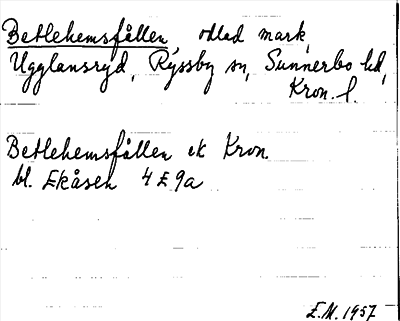 Betlehemsfållen odlad mark,
Ugglansryd, Ryssby sn, Sunnerbo hd,
Kron. l.
Betlehemsfållen ek Kron.
bl. Ekåsen 4 E 9a
E.M. 1957